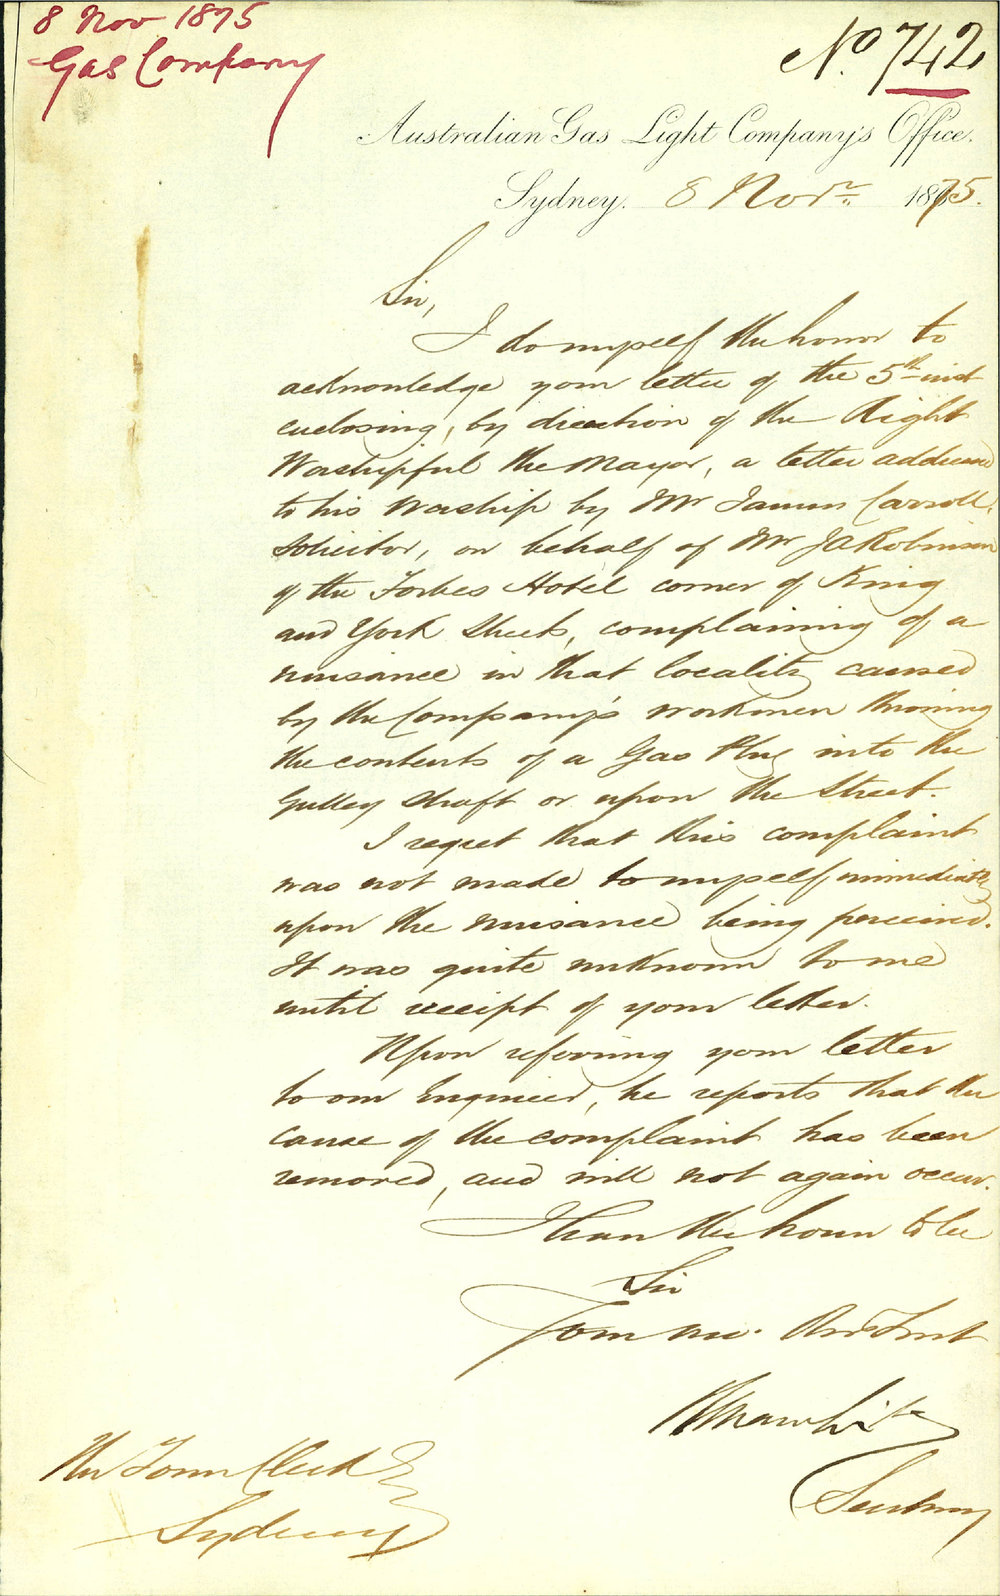 8 Nov 1875
Gas Company
No. 742
Australian Gas Light Company's Office.
Sydney. 8 Novr. 1875.
Sir,
I do myself the honor to
acknowledge your letter of the 5th inst
enclosing, by direction of the Right
Worshipful the Mayor, a letter addressed
to his Worship by Mr James Carroll,
Solicitor, on behalf of Mr J A Robinson
of the Forbes Hotel corner of King
and York Streets, complaining of a
nuisance in that locality caused
by the Company's workmen throwing
the contents of a Gas Plug into the
Gulley Shaft or upon the Street.
I regret that this complaint
was not made to myself immediately
upon the nuisance being perceived.
It was quite unknown to me
until receipt of your letter.
Upon referring your letter
to our Engineer, he reports that the
cause of the complaint has been
removed, and will not again occur.
I have the honor to be
Sir
Your mo. Obdt Servt
Secretary
The Town Clerk
Sydney